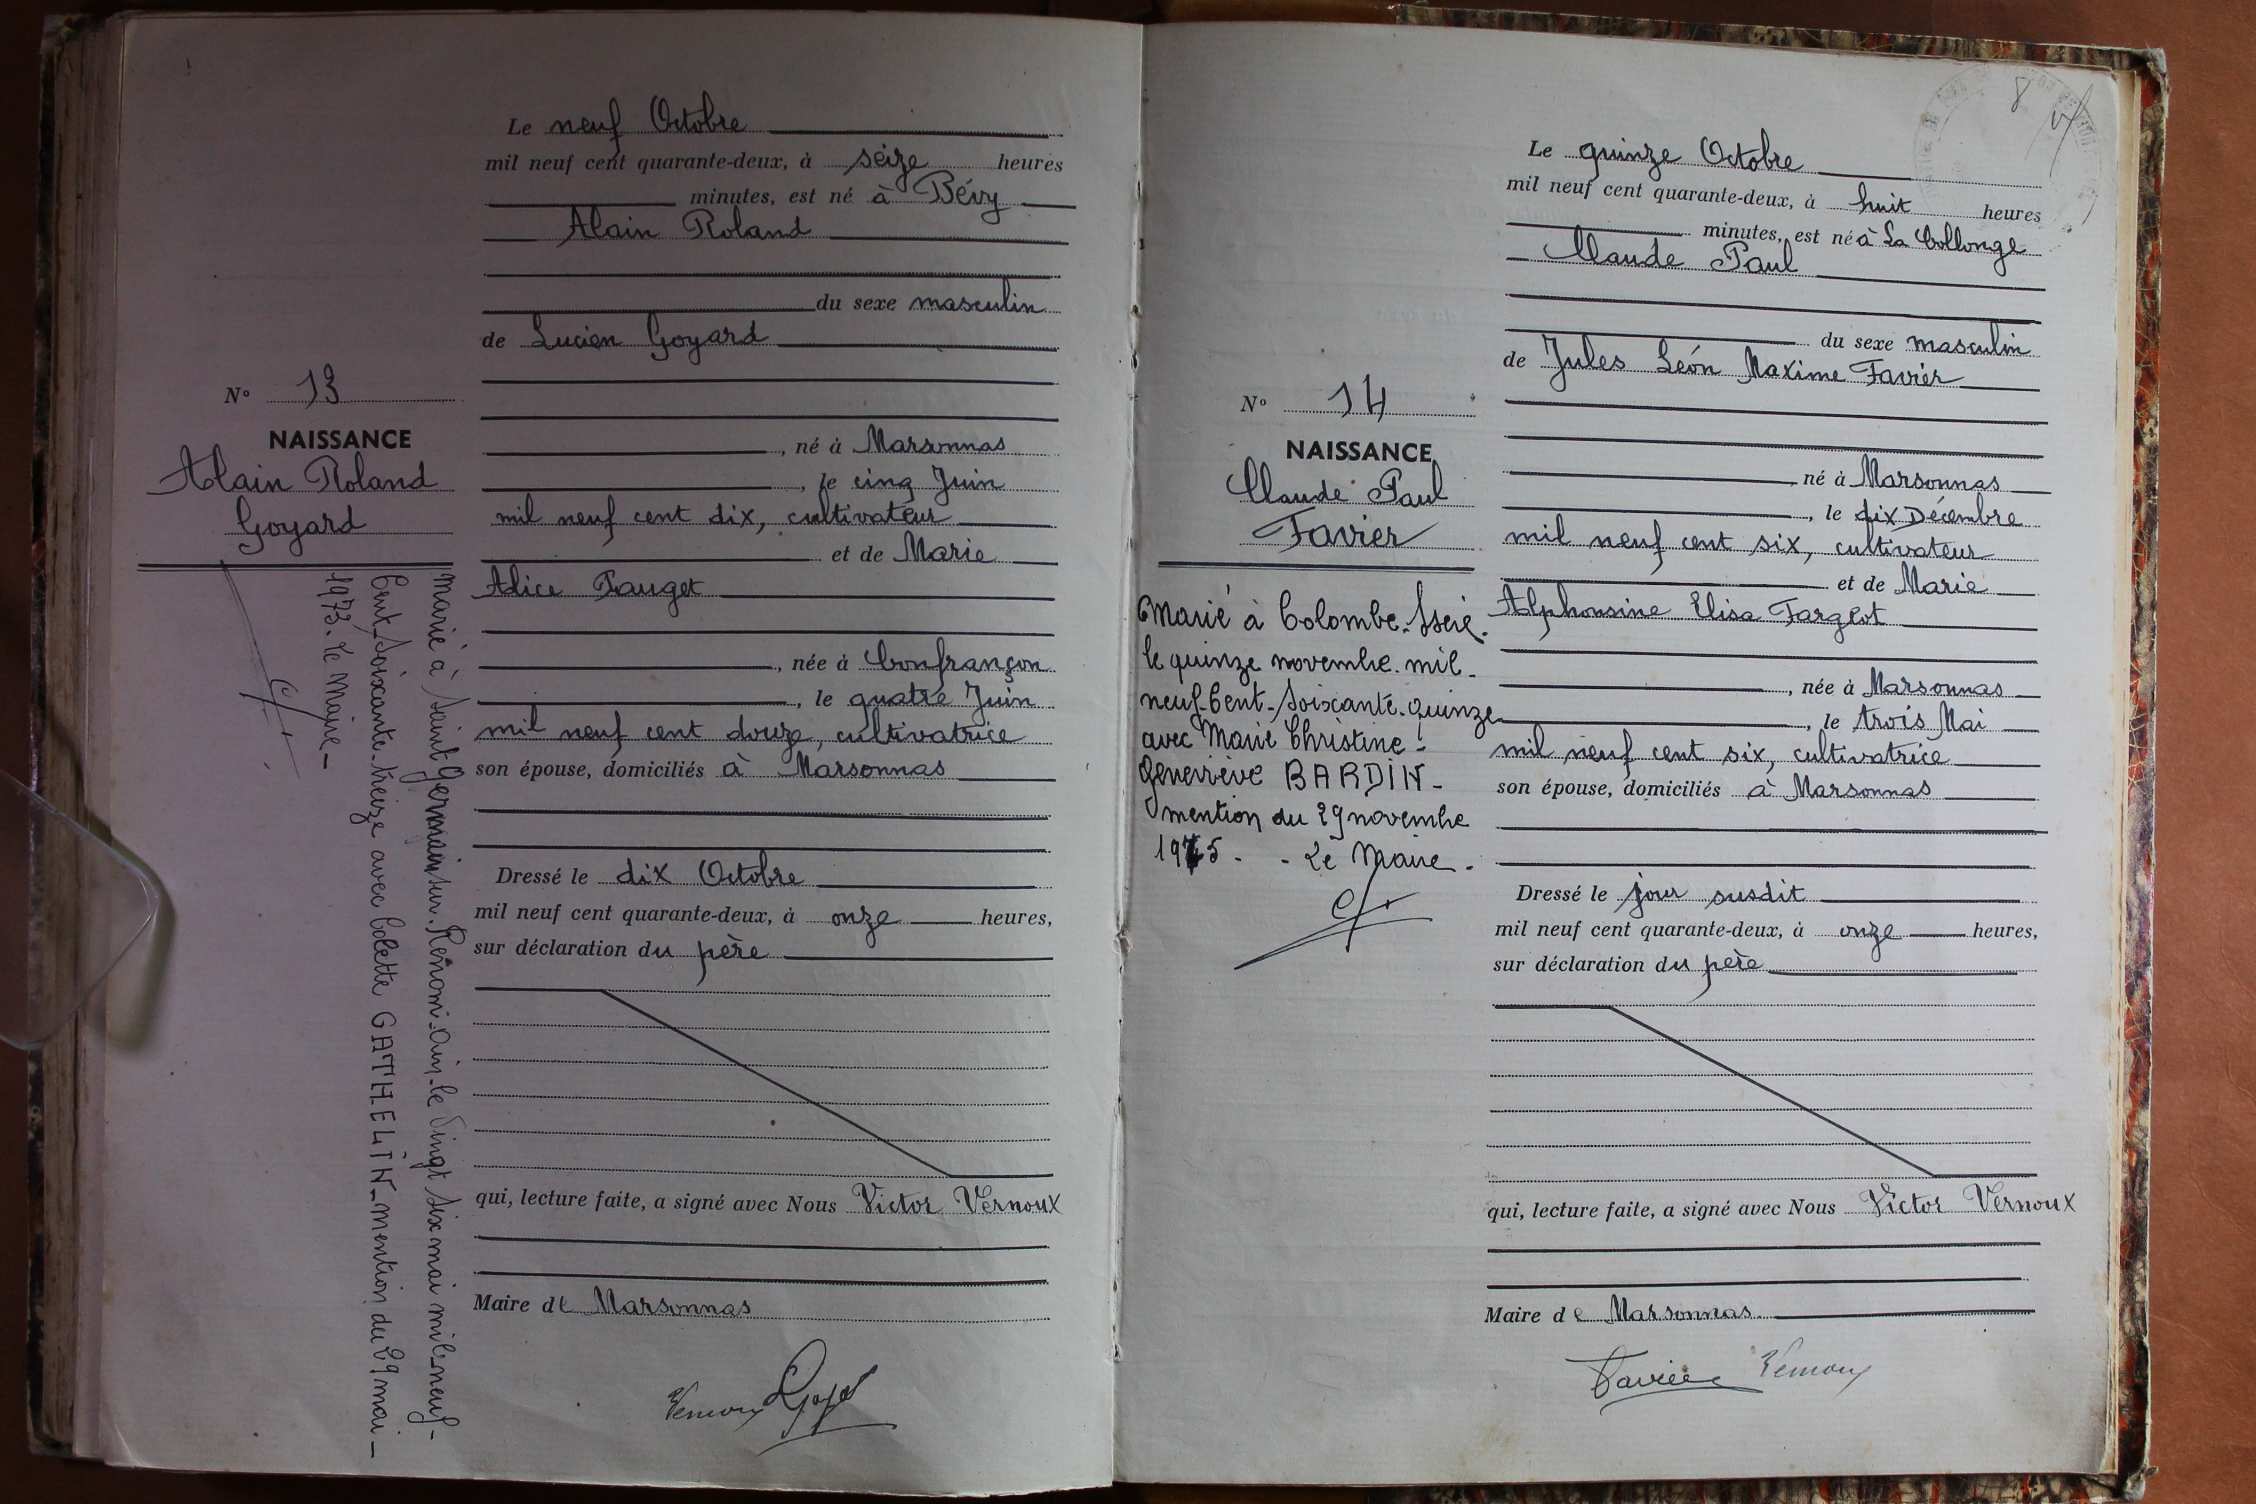 Le neuf Octobre
mil neuf cent quarante-deux, à seize heures
minutes, est né à Bévy
Alain Roland
du sexe masculin
de Lucien Goyard
N° 13
NAISSANCE
Alain Roland
Goyard
, né à Marsonnas
, le cinq Juin
mil neuf cent dix, cultivateur
et de Marie
Alice Pauget
, née à Confrançon
, le quatre Juin
mil neuf cent douze, cultivatrice
son épouse, domiciliés à Marsonnas
Dressé le dix Octobre
mil neuf cent quarante-deux, à onze heures,
sur déclaration du père
qui, lecture faite, a signé avec Nous Victor Vernoux
Maire de Marsonnas
Vernoux
Marié à Saint Germain sur Renom-Ain-le Vingt six mai mil-neuf-
Cent-Soixante-treize avec Colette GATHELIN-mention du 29 mai-
1973. Le Maire-
8
Le quinze Octobre
mil neuf cent quarante-deux, à huit heures
minutes, est né à La Collonge
Claude Paul
du sexe masculin
de Jules Léon Maxime Favier
N° 14
NAISSANCE
Claude Paul
Favier
né à Marsonnas
, le dix Décembre
mil neuf cent six, cultivateur
et de Marie
Alphonsine Elisa Fargeot
, née à Marsonnas
, le trois Mai
mil neuf cent six, cultivatrice
son épouse, domiciliés à Marsonnas
Dressé le jour susdit
mil neuf cent quarante-deux, à onze heures,
sur déclaration du père
qui, lecture faite, a signé avec Nous Victor Vernoux
Maire de Marsonnas
Favier Vernoux
Marié à Colombe
le quinze novembre mil-
neuf-Cent-Soixante-quinze
avec Marie Christine-
Geneviève BARDIN-
mention du 29 novembre
1975 - - Le Maire -